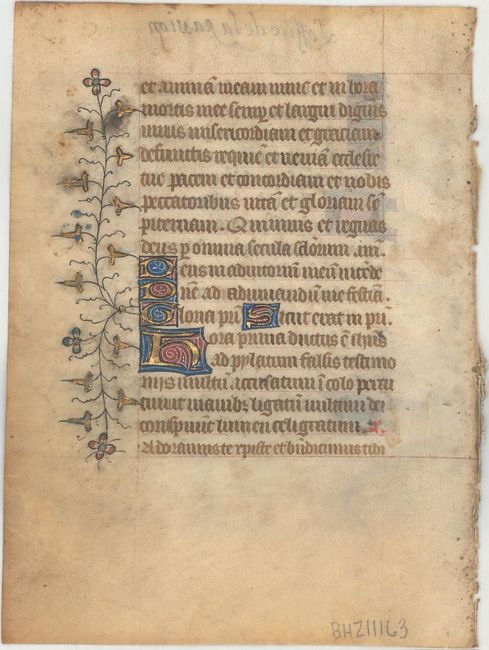 L'office de la passion
et animā meam nunc et in hora
mortis mee semp et largiri digne
viuis misericordiam et graciam
defunctis requiē et veniā ecclesie
tue pacem et concordiam et nobis
peccatoribus vitā et gloriam sē
piternam. Qui viuis et regnas
deus p omnia secula sclorum. am.
Deus in adiutoriū meū intēde
Dne ad adiuuandum me festina.
Gloria pri Sicut erat in pri.
Hora prima ductus ē ihūs
ad pylatum falsis testimo
niis multū accusatum ī colo percu
ciunt manibȝ ligatū vultum dei
conspuunt lumen celi gratum. v.
Adoramus te xpiste et bn̄dicimus tibi
BHZ11163